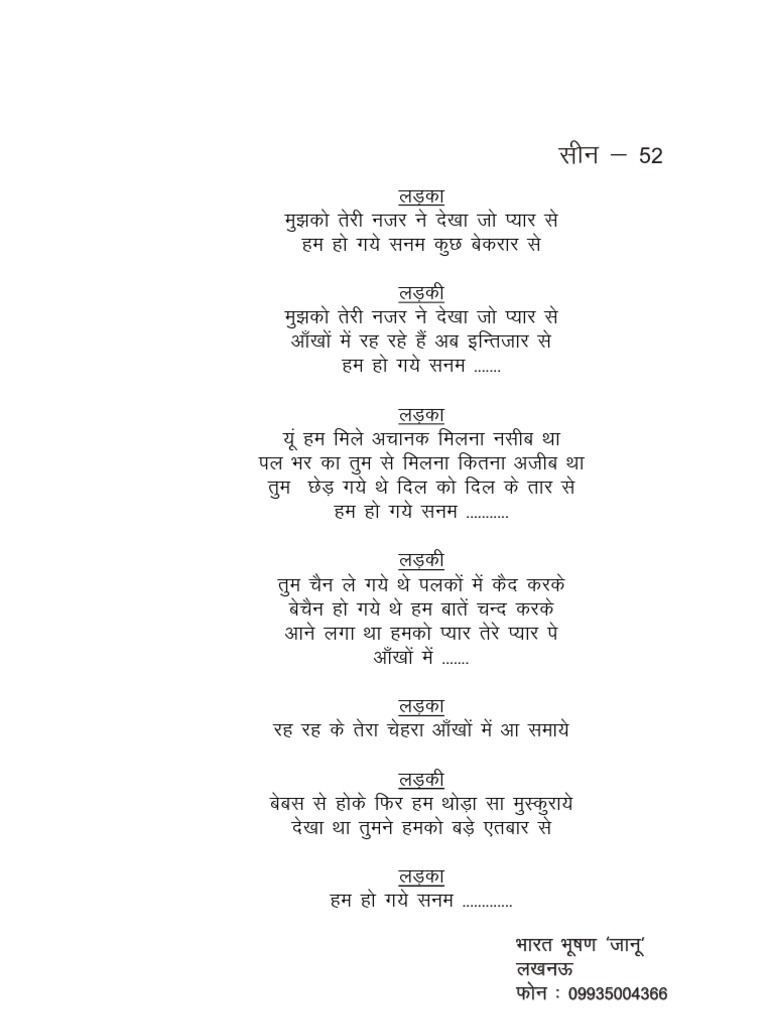 सीन – 52
लड़का
मुझको तेरी नजर ने देखा जो प्यार से
हम हो गये सनम कुछ बेकरार से
लड़की
मुझको तेरी नजर ने देखा जो प्यार से
आँखों में रह रहे हैं अब इन्तिजार से
हम हो गये सनम .......
लड़का
यूं हम मिले अचानक मिलना नसीब था
पल भर का तुम से मिलना कितना अजीब था
तुम छेड़ गये थे दिल को दिल के तार से
हम हो गये सनम ...........
लड़की
तुम चैन ले गये थे पलकों में कैद करके
बेचैन हो गये थे हम बातें चन्द करके
आने लगा था हमको प्यार तेरे प्यार पे
आँखों में .......
लड़का
रह रह के तेरा चेहरा आँखों में आ समाये
लड़की
बेबस से होके फिर हम थोड़ा सा मुस्कुराये
देखा था तुमने हमको बड़े एतबार से
लड़का
हम हो गये सनम .............
भारत भूषण ‘जानू’
लखनऊ
फोन : 09935004366